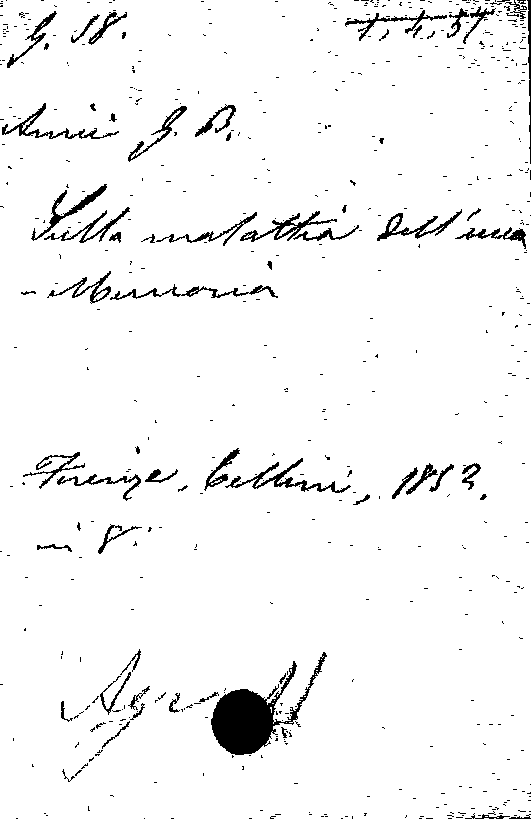 G. 58.
Amici G. B.
Sulla malattia dell'uva
- Memoria
Firenze, Cellini, 1852.
in 8.